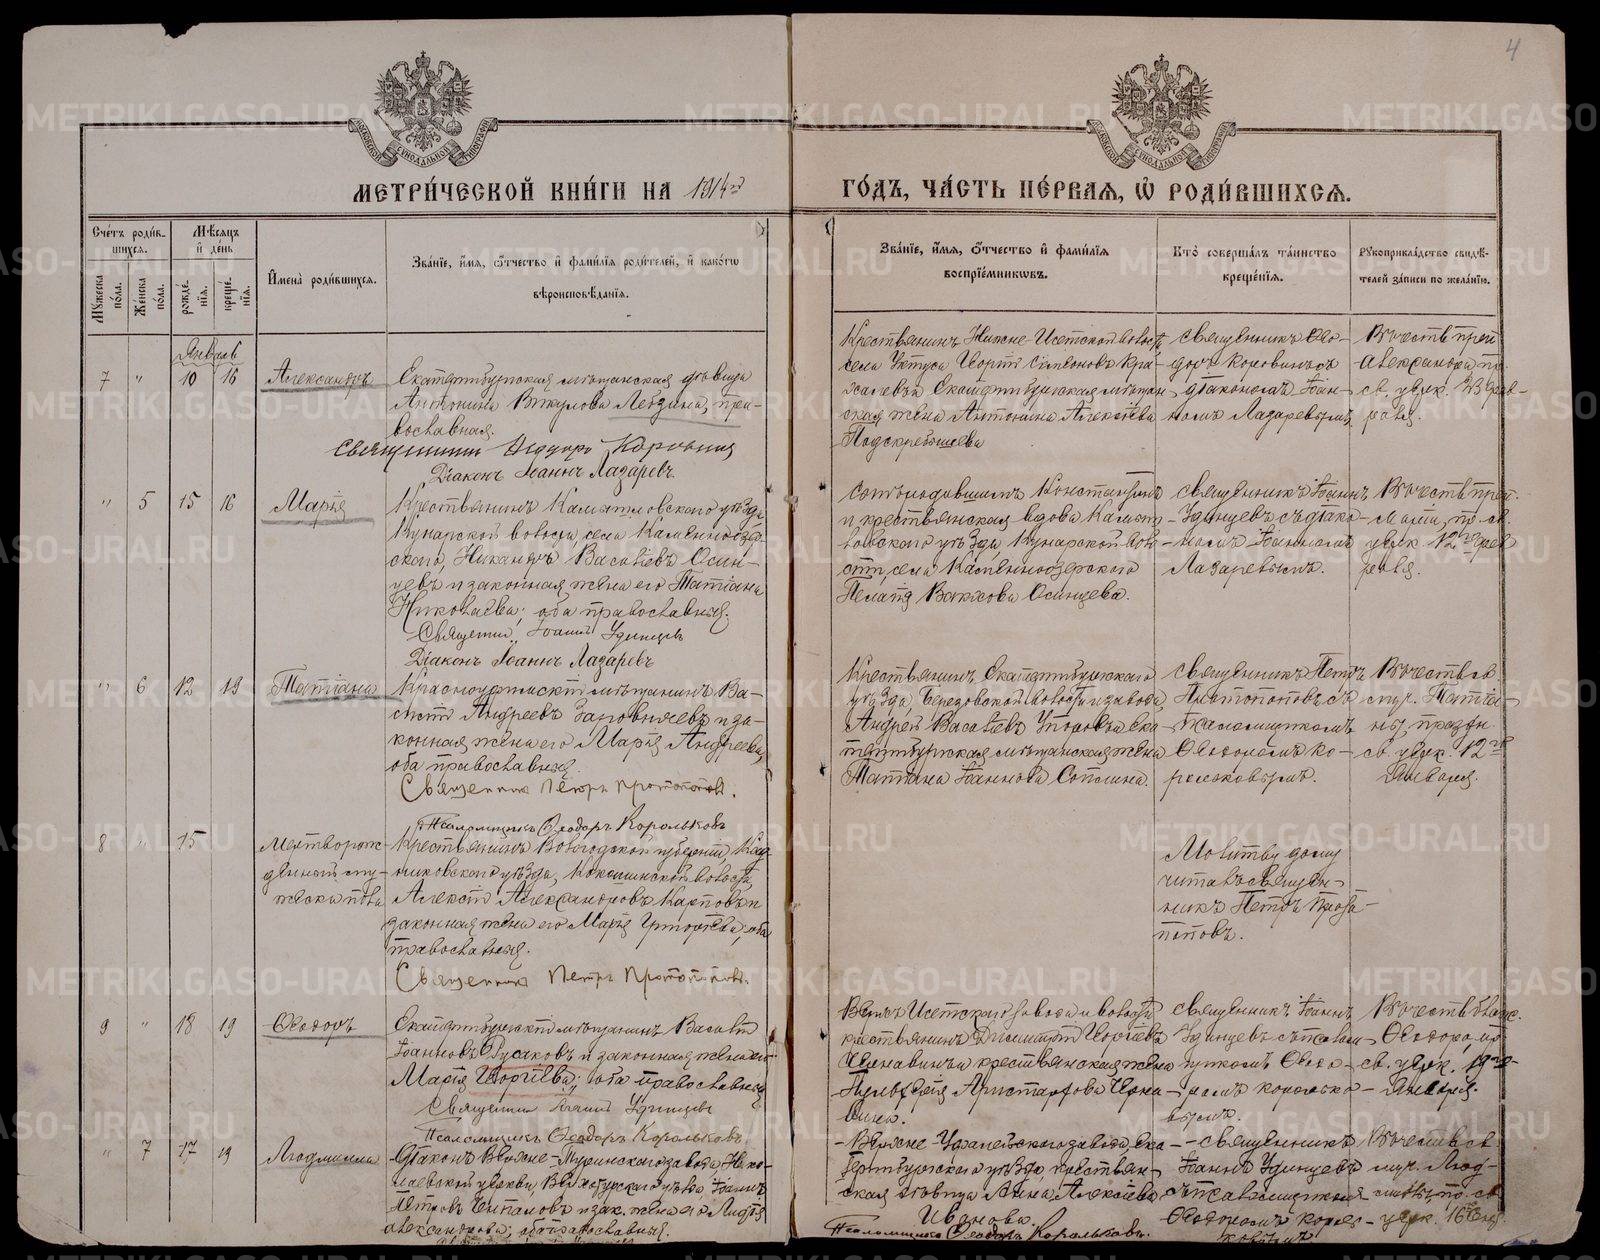 4
МЕТРИ́ЧЕСКОЙ КНИ́ГИ НА 1914й
ГО́ДЪ, ЧА́СТЬ ПЕ́РВАЯ, Ѿ РОДИ́ВШИХСЯ.
Сче́тъ роди́в-
шихся.
Мѣ́сяцъ
и҆ де́нь
Мꙋ́жеска по́ла.
Же́нска по́ла.
рожде́-
нїя.
креще́-
нїя.
И҆мена̀ роди́вшихся.
Зва́нїе, и҆́мя, ѻ҆́тчество и҆ фами́лїя роди́телей, и҆ како́гѡ
вѣроисповѣ́данїя.
Зва́нїе, и҆́мя, ѻ҆́тчество и҆ фами́лїя
воспрїе́мникѡвъ.
Кто̀ соверша́лъ та́инство
креще́нїя.
Рꙋкоприкла́дство свидѣ́-
телей за́писи по жела́нїю.
Январь
7 " 10 16 Александръ
Екатеринбургская мѣщанская дѣвица
Антонина Викулова Лебзина, пра-
вославная.
Священникъ Ѳеодоръ Коровинъ
Діаконъ Іоаннъ Лазаревъ.
Крестьянинъ Нижне-Исетской волости,
села Уктуса Георгій Симеоновъ
Екатеринбургская мѣщан-
ская жена Антонина Алексѣева
Подскребышева
Священникъ Ѳео-
доръ Коровинъ съ
діакономъ Іоан-
номъ Лазаревымъ
Въ честь преп.
Александра, по
св. церк. 23 фев-
раля.
" 5 15 16 Марія
Крестьянинъ Камышловскаго уѣзда,
Кунарской волости, села Каменноозер-
скаго, Никандръ Васильевъ Осин-
цевъ и законная жена его Татіана
Николаева; оба православные.
Священникъ Іоаннъ Удинцевъ
Діаконъ Іоаннъ Лазаревъ
и крестьянская вдова Камыш-
ловскаго уѣзда, Кунарской воло-
сти, села Каменноозерскаго
Пелагія Осинцева.
Священникъ Іоаннъ
Удинцевъ съ діако-
номъ Іоанномъ
Лазаревымъ.
Въ честь преп.
Маріи, по св.
церк. 12го фев-
раля.
" 6 12 19 Татіана
Красноуфимскій мѣщанинъ Ва-
силій Андреевъ и за-
конная жена его Марія Андреева,
оба православные.
Священникъ Петръ Протопоповъ.
Псаломщикъ Ѳеодоръ Корольковъ
Крестьянинъ Екатеринбургскаго
уѣзда, Березовской волости и завода,
Андрей Васильевъ и Ека-
теринбургская мѣщанская жена
Татіана Іоаннова
Священникъ Петръ
Протопоповъ съ
псаломщикомъ
Ѳеодоромъ Ко-
рольковымъ.
Въ честь св.
муч. Татіа-
ны, праздн.
св. церк. 12го
Января.
8 " 15
Мертворож-
денный му-
жеска пола
Крестьянинъ Вологодской губерніи, Кад-
никовскаго уѣзда, волости,
Алексій Александровъ Карповъ и
законная жена его Марія Григорьева; оба
православные.
Священникъ Петръ Протопоповъ.
Молитву дому
читалъ священ-
никъ Петръ Прото-
поповъ.
9 " 18 19 Ѳеодоръ
Екатеринбургскій мѣщанинъ Василій
Іоанновъ Русаковъ и законная жена его
Марія Георгіева; оба православные
Священникъ Іоаннъ Удинцевъ
Псаломщикъ Ѳеодоръ Корольковъ
Верхъ-Исетскаго завода и волости
крестьянинъ Димитрій Георгіевъ
и крестьянская жена
Аристархова
Священникъ Іоаннъ
Удинцевъ съ псалом-
щикомъ Ѳеодо-
ромъ Королько-
вымъ.
Ѳеодора, по
св. церк. 19го
Января.
" 7 17 19 Людмилла
Діаконъ Верхне-Туринскаго завода Нико-
лаевской церкви, Верхотурскаго уѣзда, Іоаннъ
Петровъ и зак. жена его Лидія
Александрова; оба православные.
Верхне-Уфалейскаго завода, Ека-
теринбургскаго уѣзда, крестьян-
ская дѣвица Анна Алексѣева
Иванова.
Псаломщикъ Ѳеодоръ Корольковъ.
Священникъ
Іоаннъ Удинцевъ
съ псаломщикомъ
Ѳеодоромъ Король-
ковымъ
Въ честь св.
муч. Люд-
миллы, по св.
церк. 16 Сен.
METRIKI.GASO-URAL.RU